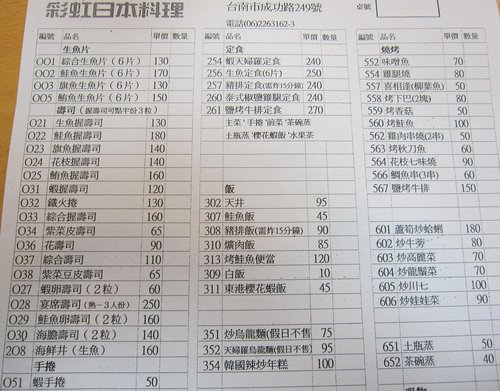 彩虹日本料理
台南市成功路249號
桌號
電話(06)2263162-3
編號 品名 單價 數量
生魚片
001 綜合生魚片(6片) 130
002 鮭魚生魚片(6片) 170
003 旗魚生魚片(6片) 130
005 鮪魚生魚片(6片) 150
壽司(握壽司可點半份3粒)
021 生魚握壽司 130
022 鮭魚握壽司 180
023 旗魚握壽司 140
024 花枝握壽司 140
025 鮪魚握壽司 160
031 蝦握壽司 120
032 鐵火捲 140
033 綜合握壽司 160
034 紫菜皮壽司 65
036 花壽司 90
037 綜合壽司 110
038 紫菜豆皮壽司 65
027 蝦卵壽司(2粒) 60
028 宴席壽司(熟-3人份) 250
029 鮭魚卵壽司(2粒) 110
030 海膽壽司(2粒) 140
208 海鮮丼(生魚) 160
手捲
051 蝦手捲 50
編號 品名 單價 數量
定食
254 蝦天婦羅定食 240
256 生魚定食(6片) 250
257 豬排定食(需炸15分鐘) 240
260 泰式椒鹽雞腿定食 240
261 鹽烤牛排定食 270
主菜'手捲'前菜'茶碗蒸
土瓶蒸'櫻花蝦飯'水果茶
飯
302 天丼 95
307 鮭魚飯 45
308 豬排飯(需炸15分鐘) 90
310 爌肉飯 85
313 烤鮭魚便當 120
309 白飯 10
311 東港櫻花蝦飯 45
351 炒烏龍麵(假日不售 75
352 天婦羅烏龍麵(假日不售 95
354 韓國辣炒年糕 100
編號 品名 單價 數量
燒烤
552 味噌魚 70
554 雞腿燒 80
557 喜相逢(柳葉魚) 50
558 烤下巴(2塊) 80
559 烤香菇 50
560 烤鮭魚 100
562 雞肉串燒(2串) 50
563 烤秋刀魚 60
564 花枝七味燒 90
566 鯛魚串(3串) 60
567 鹽烤牛排 150
601 蘆筍炒蛤蜊 180
602 炒牛蒡 80
603 炒高麗菜 70
604 炒龍鬚菜 70
605 炒川七 100
606 炒娃娃菜 90
651 土瓶蒸 50
652 茶碗蒸 40